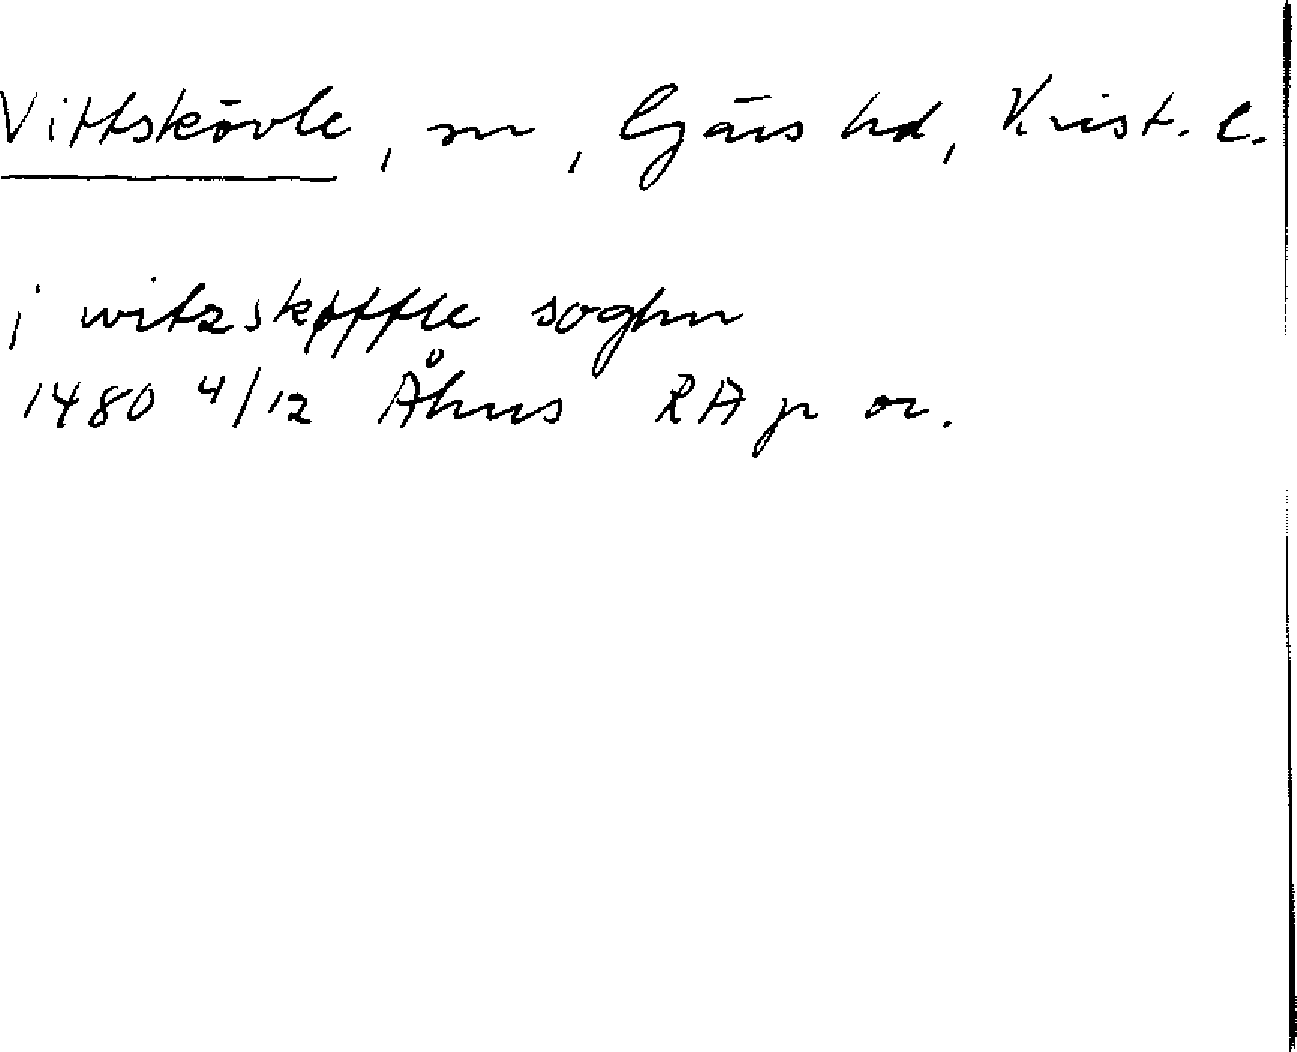 Vittskövle, sn, Gärs hd, Krist. l.
j witzskøffle soghn
1480 4/12 Åhus RA p or.